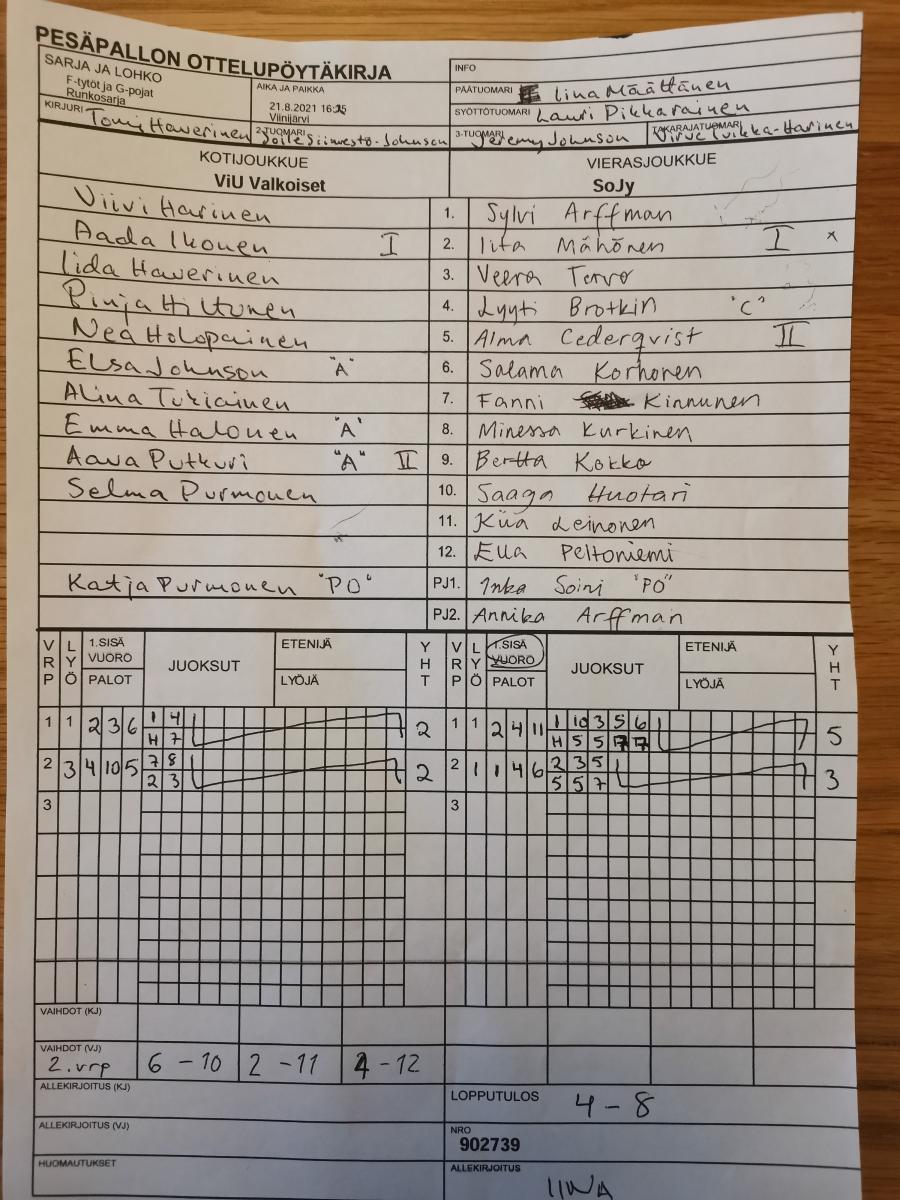 PESÄPALLON OTTELUPÖYTÄKIRJA
SARJA JA LOHKO
F-tytöt ja G-pojat
Runkosarja
AIKA JA PAIKKA
21.8.2021
Viinijärvi
INFO
PÄÄTUOMARI Iina Määttänen
SYÖTTÖTUOMARI Lauri Pikkarainen
KIRJURI Tomi Haverinen
2-TUOMARI Johnson
3-TUOMARI Jeremy Johnson
TAKARAJATUOMARI Harinen
KOTIJOUKKUE VIERASJOUKKUE
ViU Valkoiset SoJy
Viivi Harinen 1. Sylvi Arffman
Aada Ikonen I 2. Iita Mähönen I x
Iida Haverinen 3. Veera Torvo
Pinja Hiltunen 4. Lyyti Brotkin "C"
Nea Holopainen 5. Alma Cederqvist II
Elsa Johnson "A" 6. Salama Korhonen
Alina Turiainen 7. Fanni Kinnunen
Emma Halonen "A" 8. Minessa Kurkinen
Aava Putkuri "A" II 9. Bertta Kokko
Selma Purmonen 10. Saaga Huotari
11. Kiia Leinonen
12. Eua Peltoniemi
Katja Purmonen "PO" PJ1. Inka Soini "PO"
PJ2. Annika Arffman
VRP LYÖ 1.SISÄ VUORO PALOT JUOKSUT ETENIJÄ LYÖJÄ YHT VRP LYÖ 1.SISÄ VUORO PALOT JUOKSUT ETENIJÄ LYÖJÄ YHT
1 1 2 3 6 1 4 2 1 1 2 4 11 1 10 3 5 6 5
H 7 H 5 5 7 7
2 3 4 10 5 7 8 2 2 1 1 4 6 2 3 5 3
2 3 5 5 7
3 3
VAIHDOT (KJ)
VAIHDOT (VJ)
2.vrp 6 - 10 2 - 11 4 - 12
ALLEKIRJOITUS (KJ)
LOPPUTULOS 4 - 8
ALLEKIRJOITUS (VJ)
NRO
902739
HUOMAUTUKSET
ALLEKIRJOITUS
IINA